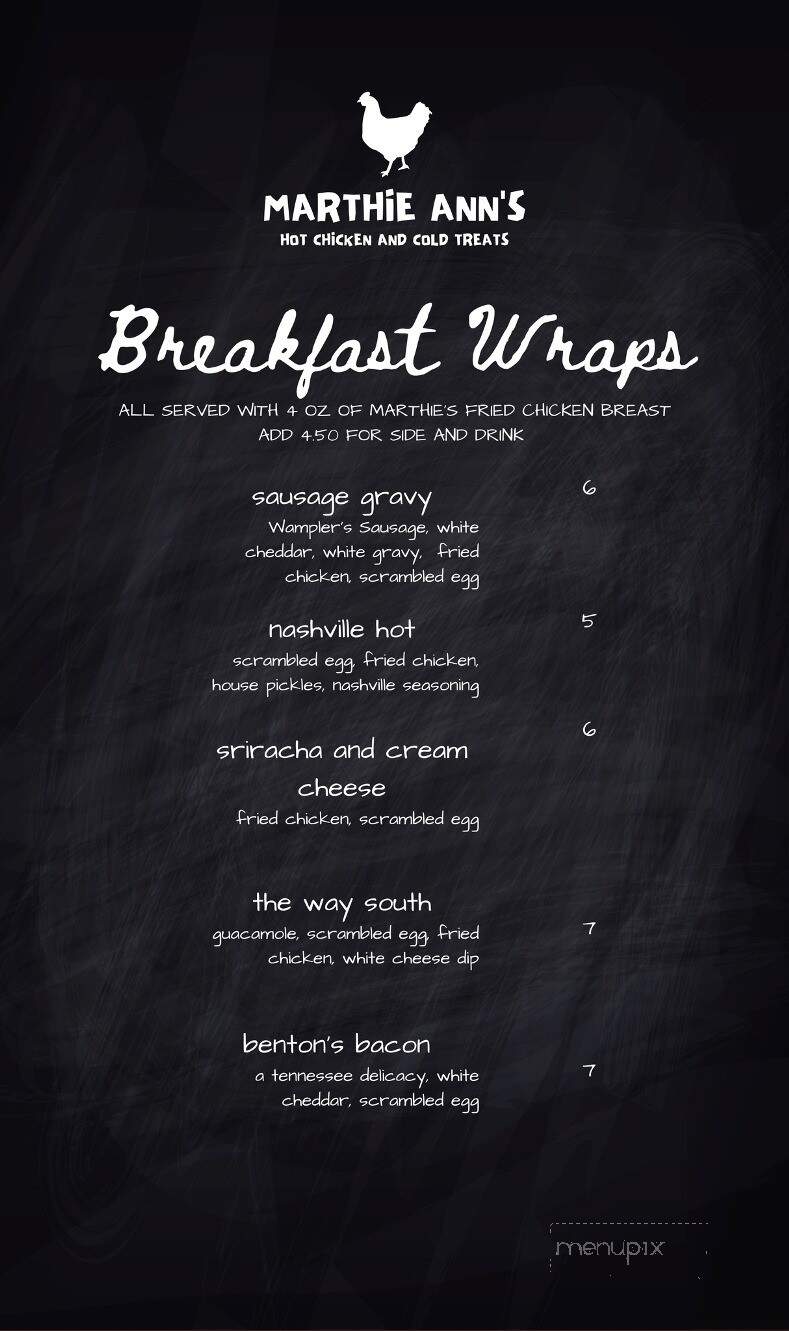 MARTHiE ANN'S
HOT CHICKEN AND COLD TREATS
Breakfast Wraps
ALL SERVED WITH 4 OZ OF MARTHIE'S FRIED CHICKEN BREAST
ADD 4.50 FOR SIDE AND DRINK
sausage gravy 6
Wampler's Sausage, white
cheddar, white gravy, fried
chicken, scrambled egg
nashville hot 5
scrambled egg, fried chicken,
house pickles, nashville seasoning
sriracha and cream 6
cheese
fried chicken, scrambled egg
the way south
guacamole, scrambled egg, fried 7
chicken, white cheese dip
benton's bacon
a tennessee delicacy, white 7
cheddar, scrambled egg
menupix